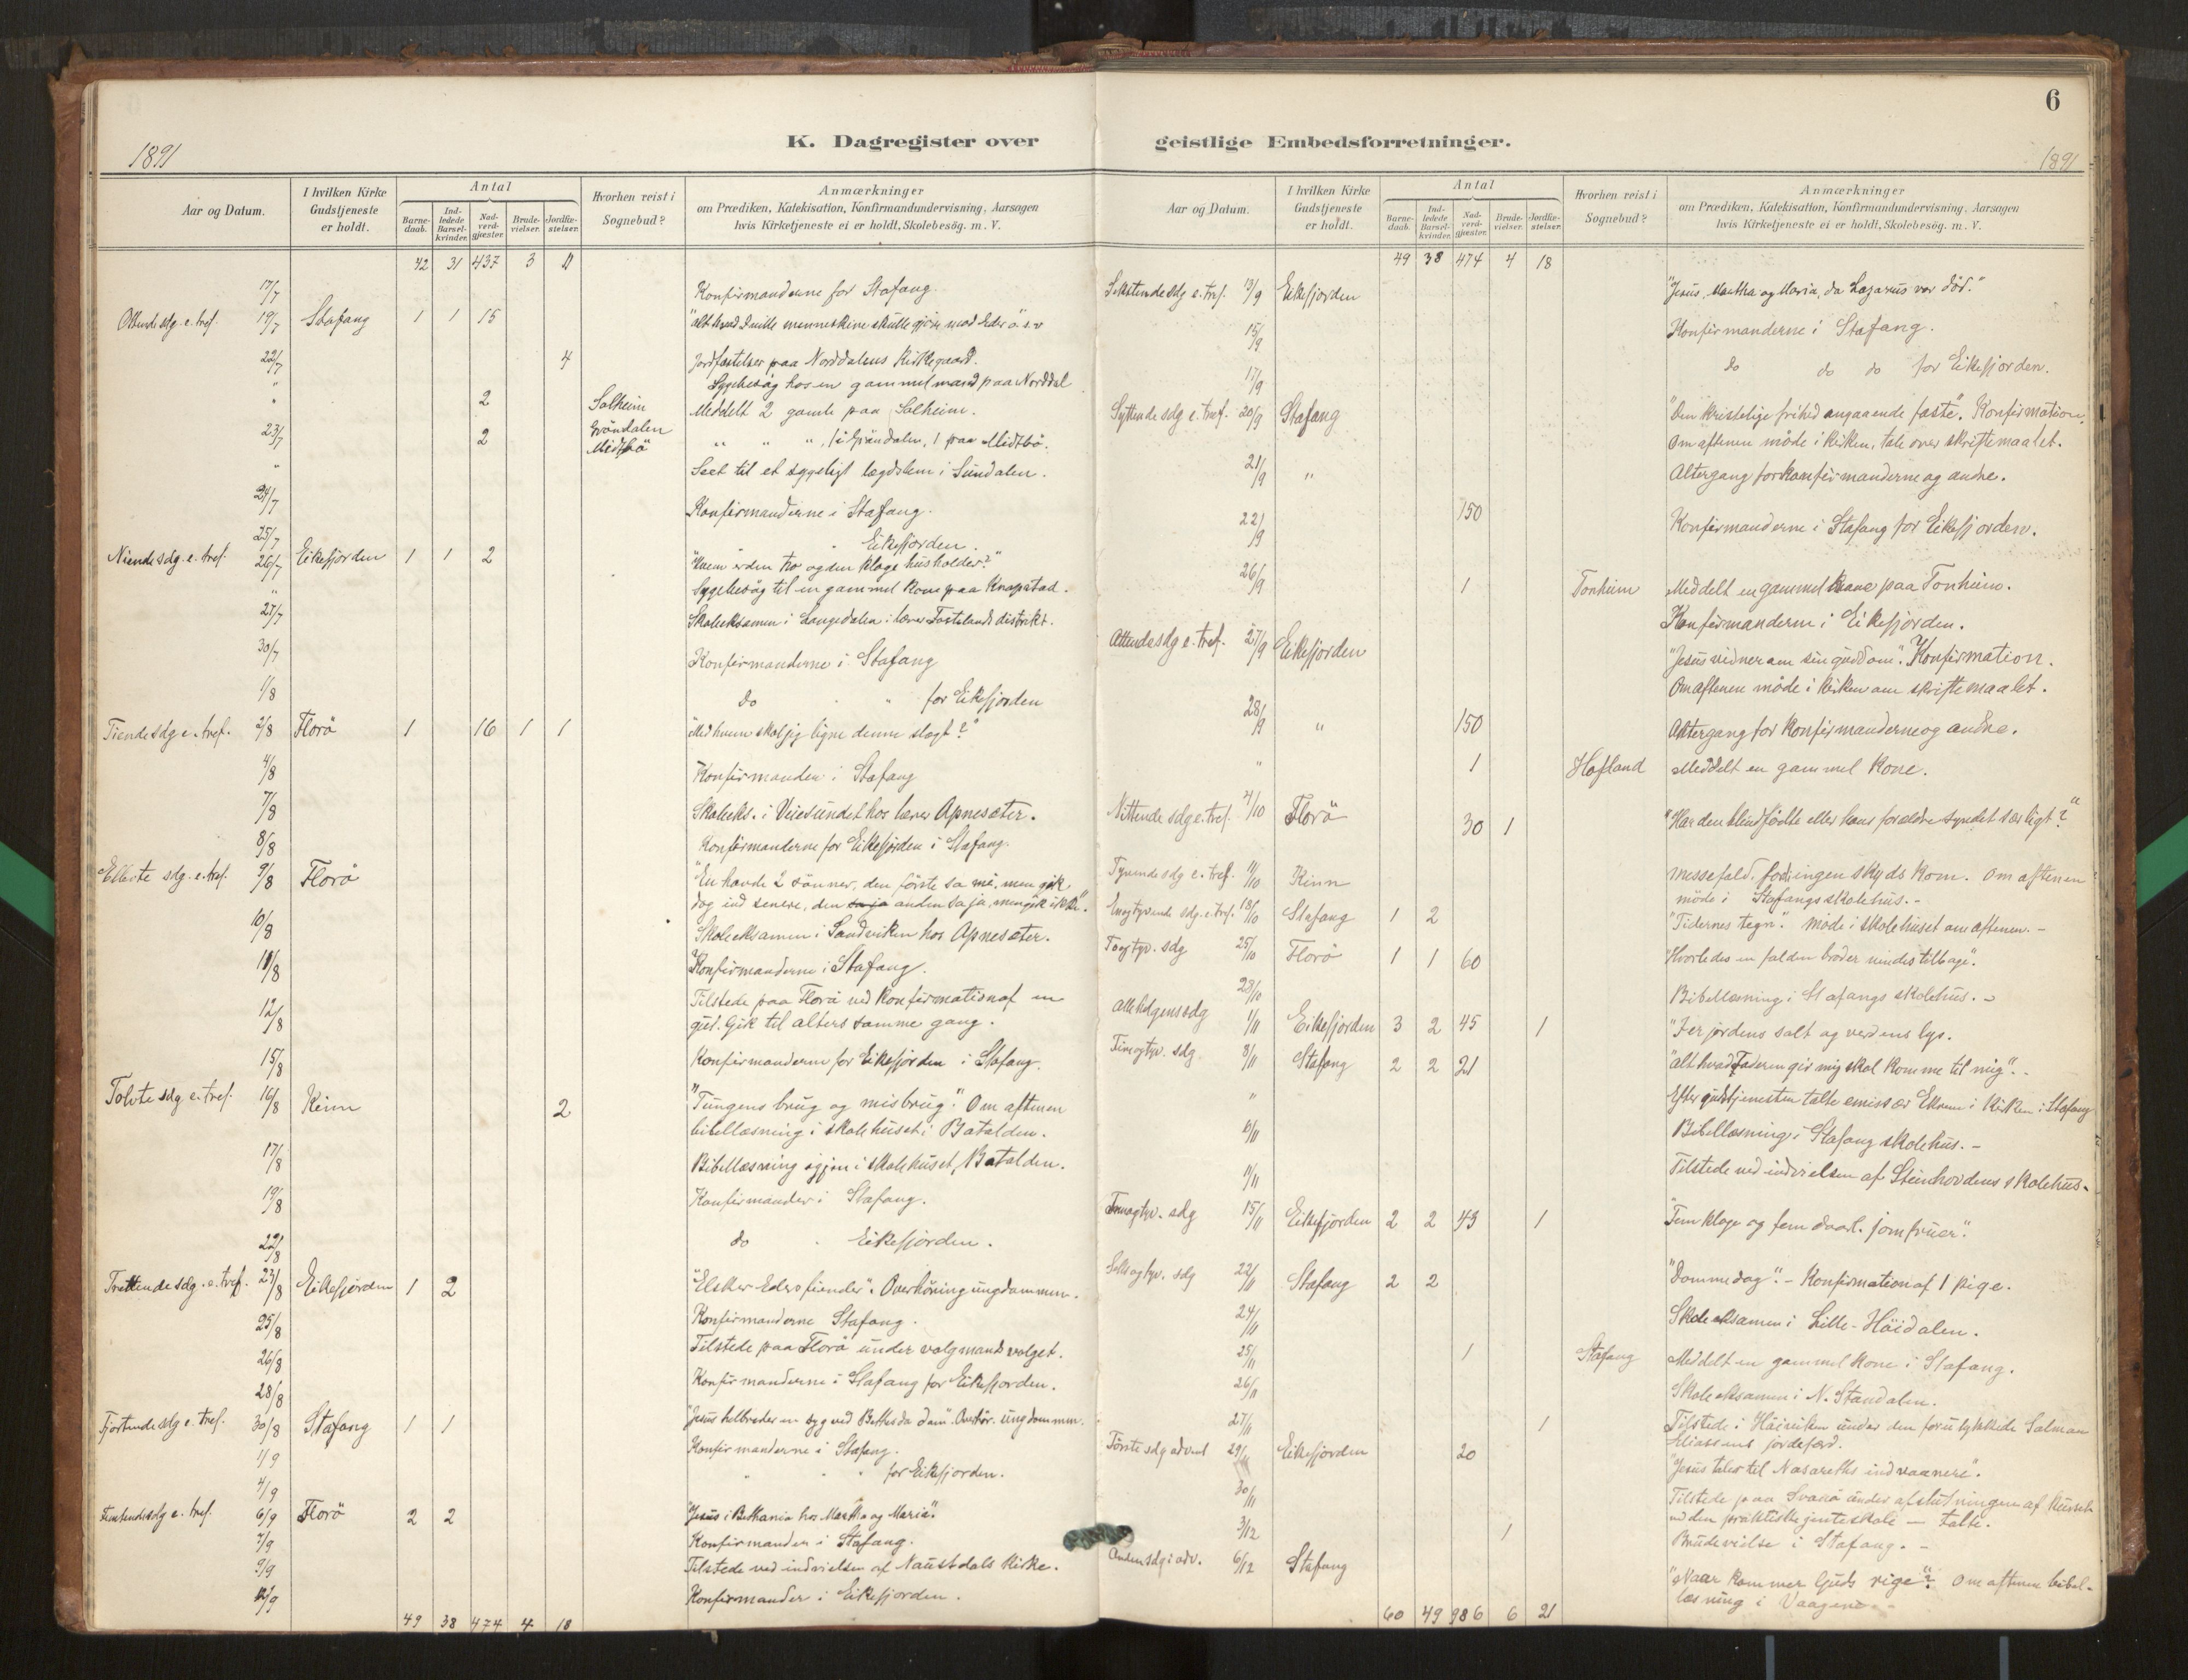 6
1891
K. Dagregister over geistlige Embedsforretninger.
1891
Aar og Datum.
I hvilken Kirke Gudstjeneste er holdt.
Antal
Barne-daab.
Ind-ledede Barsel-kvinder.
Nad-verd-gjæster.
Brude-vielser.
Jordfæ-stelser.
Hvorhen reist i Sognebud?
Anmærkninger
om Prædiken, Katekisation, Konfirmandundervisning, Aarsagen
hvis Kirketjeneste ei er holdt, Skolebesøg. m. V.
42 31 437 3 11
17/7 Konfirmanderne for Stafang.
Ottende sdg. e. tref. 19/7 Stafang 1 1 15 "alt hvad I ville menneskene skulle gjøre mod Eder o" s.v
22/7 4 Jordfæstelser paa Norddalens Kirkegaard.
" Sygebesøg hos en gammel mand paa Norddal
" 2 Solheim Meddelt 2 gamle paa Solheim.
23/7 2 Gröndalen Midtbö " " ", 1 i Gröndalen, 1 paa Midtbö.
" Seet til et sygeligt lægdslem i Sundalen.
24/7 Konfirmanderne i Stafang.
25/7 " " Eikefjorden.
Niende sdg. e. tref. 26/7 Eikefjorden 1 1 2 "Hvem er den tro og den kloge husholder?"
" Sygebesøg til en gammel kone paa Knapstad.
27/7 Skoleeksamen i Langedalen i lærer Tostelands distrikt.
30/7 Konfirmanderne i Stafang
1/8 do " " for Eikefjorden
Tiende sdg e. tref. 2/8 Florö 1 16 1 1 "Med hvem skal jeg ligne denne slægt?"
4/8 Konfirmander i Stafang
7/8 Skoleeks. i Veiesundet hos lærer Apnesæter.
8/8 Konfirmanderne for Eikefjorden i Stafang.
Ellevte sdg. e. tref. 9/8 Florö "En havde 2 sönner, den förste sa nei, men gik
dog ind senere, den sa ja anden sa ja, men gik ikke."
10/8 Skoleeksamen i Sandviken hos Apnesæter.
11/8 Konfirmanderne i Stafang.
12/8 Tilstede paa Florö ved Konfirmation af en
gut. Gik til alters samme gang.
15/8 Konfirmanderne for Eikefjorden i Stafang.
Tolvte sdg e. tref. 16/8 Kinn 2 "Tungens brug og misbrug." Om aftenen
bibellæsning i skolehuset i Batalden.
17/8 Bibellæsning igjen i skolehuset, Batalden.
19/8 Konfirmander i Stafang.
22/8 do " Eikefjorden.
Trettende sdg. e. tref. 23/8 Eikefjorden 1 2 "Elsker Eders fiender". Overhöring ungdommen.
25/8 Konfirmanderne Stafang.
26/8 Tilstede paa Florö under valgmandsvalget.
28/8 Konfirmanderne i Stafang for Eikefjorden.
Fjortende sdg e. tref. 30/8 Stafang 1 1 "Jesus helbreder en syg ved Bethesda dam". Overhör. ungdommen.
1/9 Konfirmanderne i Stafang.
4/9 " " " for Eikefjorden.
Femtende sdg e. tref. 6/9 Florö 2 2 "Jesus i Bethania hos Martha og Maria."
7/9 Konfirmander i Stafang.
9/9 Tilstede ved indvielsen af Naustdals Kirke.
12/9 Konfirmander i Eikefjorden.
49 38 474 4 18
Aar og Datum.
I hvilken Kirke Gudstjeneste er holdt.
Antal
Barne-daab.
Ind-ledede Barsel-kvinder.
Nad-verd-gjæster.
Brude-vielser.
Jordfæ-stelser.
Hvorhen reist i Sognebud?
Anmærkninger
om Prædiken, Katekisation, Konfirmandundervisning, Aarsagen
hvis Kirketjeneste ei er holdt, Skolebesøg. m. V.
49 38 474 4 18
Sekstende sdg e. tref. 13/9 Eikefjorden "Jesus, Martha og Maria, da Lazarus var död."
15/9 Konfirmanderne i Stafang.
17/9 do do do for Eikefjorden.
Syttende sdg e. tref. 20/9 Stafang "Den kristelige frihed angaaende faste". Konfirmation.
Om aftenen möde i kirken, tale over skriftemaalet.
21/9 " 150 Altergang for konfirmanderne og andre.
22/9 Konfirmanderne i Stafang for Eikefjorden.
26/9 1 Tonheim Meddelt en gammel kone paa Tonheim.
Konfirmanderne i Eikefjorden.
Attende sdg e. tref. 27/9 Eikefjorden "Jesus vidner om sin guddom". Konfirmation.
Om aftenen möde i kirken om skriftemaalet.
28/9 " 150 Altergang for Konfirmanderne og andre.
" 1 Hofland Meddelt en gammel kone.
Nittende sdg e. tref. 4/10 Florö 30 1 "Har den blindfödte eller hans forældre syndet særligt?"
Tyvende sdg e. tref. 11/10 Kinn Messefald. fordi ingen skyds kom. Om aftenen
möde i Stafangs skolehus.-
Enogtyvende sdg. e. tref. 18/10 Stafang 1 2 "Tidernes tegn". möde i skolehuset om aftenen.-
Toogtyv. sdg 25/10 Florö 1 1 60 "Hvorledes en falden broder vindes tilbage".
28/10 Bibellæsning i Stafangs skolehus.-
Allehelgens sdg 1/11 Eikefjorden 3 2 45 1 "I er jordens salt og verdens lys.
Fireogtyv. sdg. 8/11 Stafang 2 2 21 "Alt hvad Faderen gir mig skal komme til mig".
" Efter gudstjenesten talte emissær Ekrene i Kirken i Stafang
Bibellæsning i Stafang skolehus.-
11/11 Tilstede ved indvielsen af Steinhovdens skolehus.
Femogtyv. sdg 15/11 Eikefjorden 2 2 43 1 "Fem kloge og fem daarl. jomfruer."
Seksogtyv. sdg 22/11 Stafang 2 2 "Dommedag".- Konfirmation af 1 pige.
24/11 Skoleeksamen i Lille-Höidalen.
25/11 1 Stafang Meddelt en gammel kone i Stafang.
26/11 Skoleeksamen i N. Standalen.
27/11 1 Tilstede i Höiviken under den forulykkede Salmon
Eliassens jordefærd.
Förste sdg advent 29/11 Eikefjorden 20 "Jesus taler til Nasareths indvaanere".
30/11 Tilstede paa Svanö under afslutningen af kurset
ved den praktiske jenteskole — talte.
3/12 1 Brudevielse i Stafang.-
Anden sdg i adv. 6/12 Stafang "Naar kommer Guds rige"? Om aftenen bibel-
læsning i Vaagene-
60 49 986 6 21